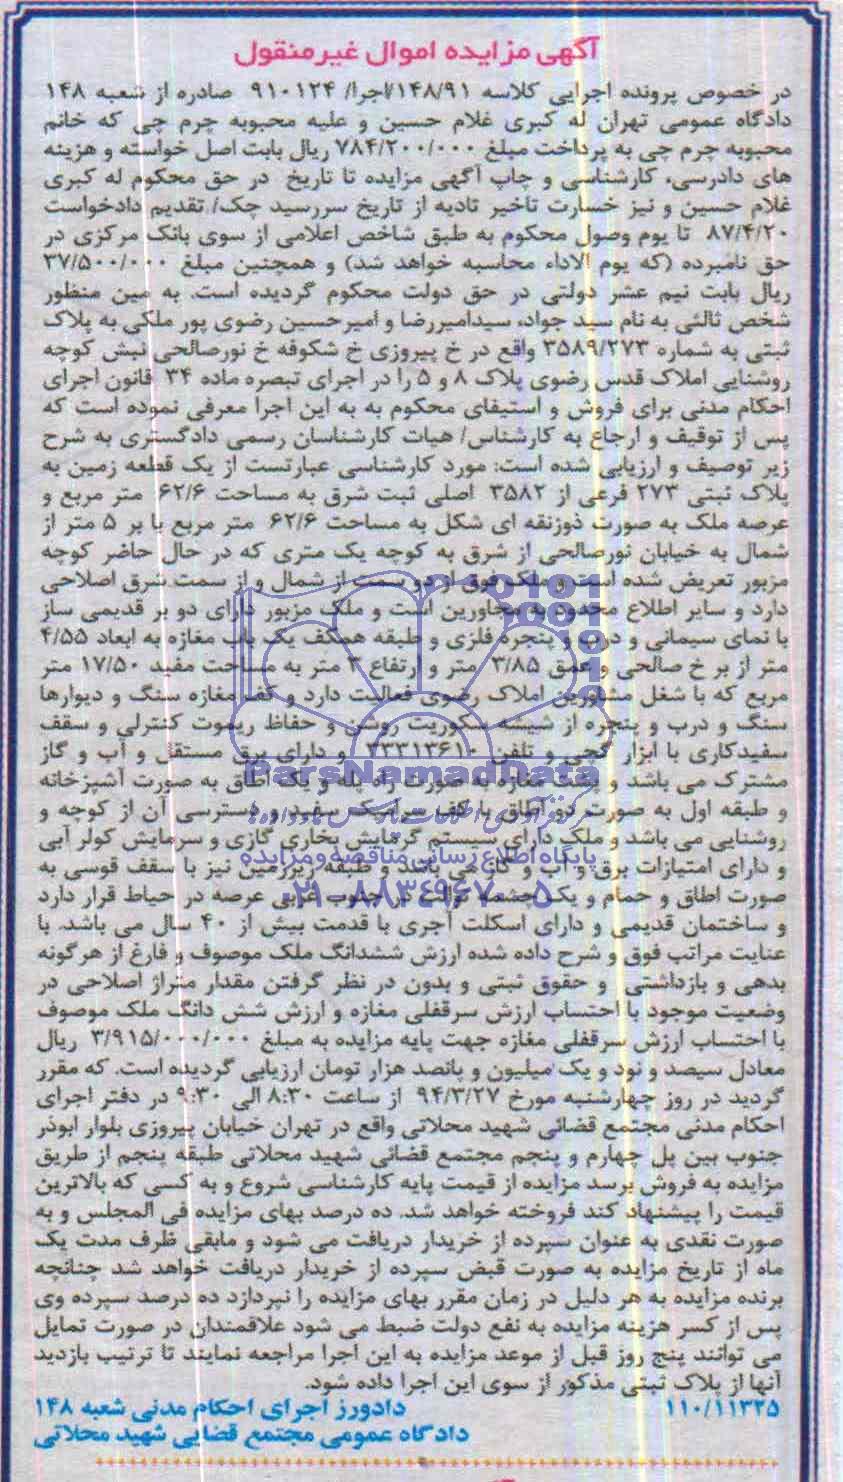 آگهی مزایده اموال غیرمنقول
در خصوص پرونده اجرایی کلاسه ۱۴۸/۹۱/اجرا/ ۹۱۰۱۲۴ صادره از شعبه ۱۴۸
دادگاه عمومی تهران له کبری غلام حسین و علیه محبوبه چرم چی که خانم
محبوبه چرم چی به پرداخت مبلغ ۷۸۴/۲۰۰/۰۰۰ ریال بابت اصل خواسته و هزینه
های دادرسی، کارشناسی و چاپ آگهی مزایده تا تاریخ در حق محکوم له کبری
غلام حسین و نیز خسارت تاخیر تادیه از تاریخ سررسید چک/ تقدیم دادخواست
۸۷/۴/۲۰ تا یوم وصول محکوم به طبق شاخص اعلامی از سوی بانک مرکزی در
حق نامبرده (که یوم الاداء محاسبه خواهد شد) و همچنین مبلغ ۳۷/۵۰۰/۰۰۰
ریال بابت نیم عشر دولتی در حق دولت محکوم گردیده است. به مین منظور
شخص ثالثی به نام سید جواد، سیدامیررضا و امیرحسین رضوی پور ملکی به پلاک
ثبتی به شماره ۳۵۸۹/۲۷۳ واقع در خ پیروزی خ شکوفه خ نورصالحی نبش کوچه
روشنایی املاک قدس رضوی پلاک ۸ و ۵ را در اجرای تبصره ماده ۳۴ قانون اجرای
احکام مدنی برای فروش و استیفای محکوم به به این اجرا معرفی نموده است که
پس از توقیف و ارجاع به کارشناس/ هیات کارشناسان رسمی دادگستری به شرح
زیر توصیف و ارزیابی شده است: مورد کارشناسی عبارتست از یک قطعه زمین به
پلاک ثبتی ۲۷۳ فرعی از ۳۵۸۲ اصلی ثبت شرق به مساحت ۶۲/۶ متر مربع و
عرصه ملک به صورت ذوزنقه ای شکل به مساحت ۶۲/۶ متر مربع با بر ۵ متر از
شمال به خیابان نورصالحی از شرق به کوچه یک متری که در حال حاضر کوچه
مزبور تعریض شده است و ملک فوق از دو سمت از شمال و از سمت شرق اصلاحی
دارد و سایر اطلاع محدود به مجاورین است و ملک مزبور دارای دو بر قدیمی ساز
با نمای سیمانی و درب و پنجره فلزی و طبقه همکف یک باب مغازه به ابعاد ۴/۵۵
متر از بر خ صالحی و عمق ۳/۸۵ متر و ارتفاع ۳ متر به مساحت مفید ۱۷/۵۰ متر
مربع که با شغل مشاورین املاک رضوی فعالیت دارد و کف مغازه سنگ و دیوارها
سنگ و درب و پنجره از شیشه سکوریت روشن و حفاظ ریموت کنترلی و سقف
سفیدکاری با ابزار گچی و تلفن ۳۳۳۱۳۶۱۰ و دارای برق مستقل و آب و گاز
مشترک می باشد و پشت مغازه به صورت راه پله و یک اطاق به صورت آشپزخانه
و طبقه اول به صورت دو اطاق با کف سرامیک سفید و دسترسی آن از کوچه و
روشنایی می باشد و ملک دارای سیستم گرمایش بخاری گازی و سرمایش کولر آبی
و دارای امتیازات برق و آب و گاز می باشد و طبقه زیرزمین نیز با سقف قوسی به
صورت اطاق و حمام و یک چشمه توالت در جنوب غربی عرصه در حیاط قرار دارد
و ساختمان قدیمی و دارای اسکلت آجری با قدمت بیش از ۴۰ سال می باشد. با
عنایت مراتب فوق و شرح داده شده ارزش ششدانگ ملک موصوف و فارغ از هرگونه
بدهی و بازداشتی و حقوق ثبتی و بدون در نظر گرفتن مقدار متراژ اصلاحی در
وضعیت موجود با احتساب ارزش سرقفلی مغازه و ارزش شش دانگ ملک موصوف
با احتساب ارزش سرقفلی مغازه جهت پایه مزایده به مبلغ ۳/۹۱۵/۰۰۰/۰۰۰ ریال
معادل سیصد و نود و یک میلیون و پانصد هزار تومان ارزیابی گردیده است. که مقرر
گردید در روز چهارشنبه مورخ ۹۴/۳/۲۷ از ساعت ۸:۳۰ الی ۹:۳۰ در دفتر اجرای
احکام مدنی مجتمع قضائی شهید محلاتی واقع در تهران خیابان پیروزی بلوار ابوذر
جنوب بین پل چهارم و پنجم مجتمع قضائی شهید محلاتی طبقه پنجم از طریق
مزایده به فروش برسد مزایده از قیمت پایه کارشناسی شروع و به کسی که بالاترین
قیمت را پیشنهاد کند فروخته خواهد شد. ده درصد بهای مزایده فی المجلس و به
صورت نقدی به عنوان سپرده از خریدار دریافت می شود و مابقی ظرف مدت یک
ماه از تاریخ مزایده به صورت قبض سپرده از خریدار دریافت خواهد شد چنانچه
برنده مزایده به هر دلیل در زمان مقرر بهای مزایده را نپردازد ده درصد سپرده وی
پس از کسر هزینه مزایده به نفع دولت ضبط می شود علاقمندان در صورت تمایل
می توانند پنج روز قبل از موعد مزایده به این اجرا مراجعه نمایند تا ترتیب بازدید
آنها از پلاک ثبتی مذکور از سوی این اجرا داده شود.
۱۱۰/۱۱۳۲۵ دادورز اجرای احکام مدنی شعبه ۱۴۸
دادگاه عمومی مجتمع قضایی شهید محلاتی
ParsNamadData
پایگاه اطلاع رسانی مناقصه و مزایده
۰۲۱-۸۸۳۴۹۶۷۰-۵